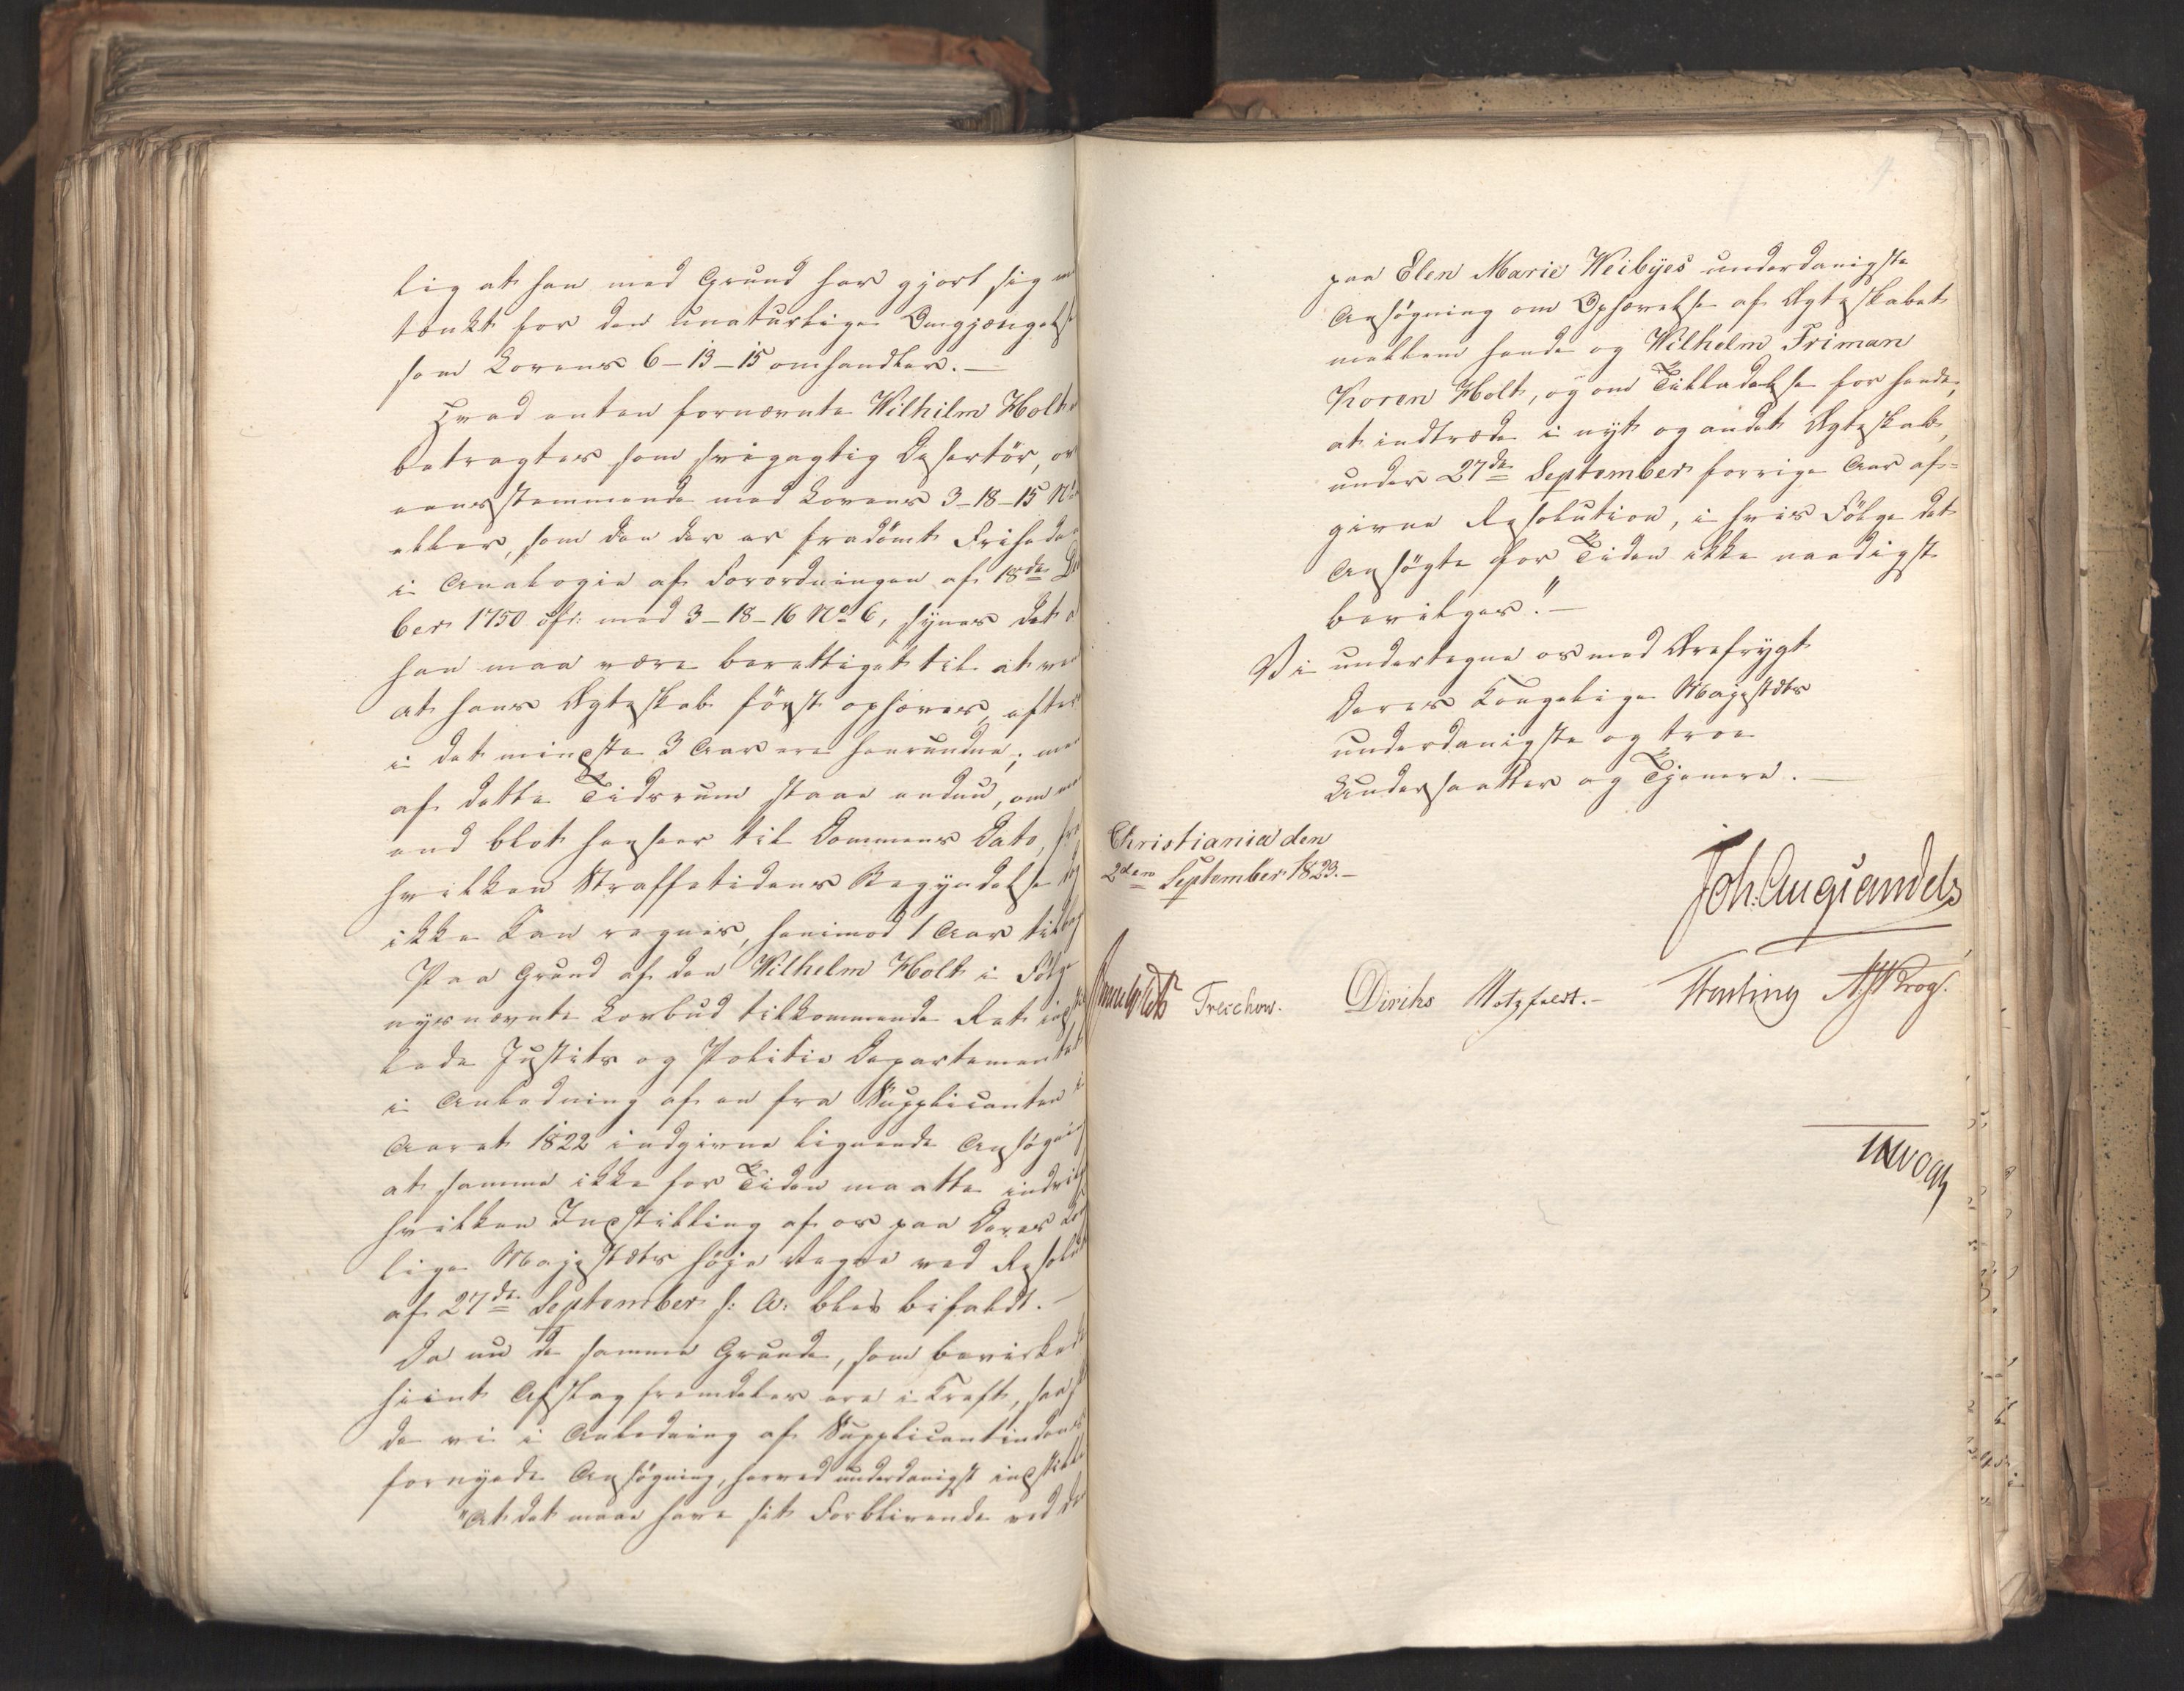 lig at han med Grund har gjort sig
tænkt for den unaturlige Omgjængelse
som Lovens 6-13-15 omhandler.-
Hvad enten fornævnte Wilhelm Holt
betragtes som svigagtig Desertör, o
eensstemmende med Lovens 3-18-15 No
eller, som den der er fradömt Friheden
i Analogie af Forordningen af 18de
ber 1750 cfr: med 3-18-16 No 6, synes det
han maa være berettiget til at
at hans Ægteskab först ophæves, efter
i det mindste 3 Aar ere henrundne; men
af dette Tidsrum staae endnu, om
end blot hensees til Dommens Dato, fra
hvilken Straffetidens Begyndelse dog
ikke kan regnes, henimod 1 Aar tilbage
Paa Grund af den Wilhelm Holt i Fölge
nysnævnte Lovbud tilkommende Ret
lede Justits og Politie Departementet
i Anledning af en fra Supplicanten i
Aaret 1822 indgiven lignende Ansögning
at samme ikke for Tiden maatte
hvilken Indstilling af os paa Deres
lige Majestæts höje Vegne ved Resolut
af 27de September f: A: blev bifaldt.-
Da nu de samme Grunde, som bevirkede
hiint Afslag fremdeles ere i Kraft, saa
de vi i Anledning af Supplicantindens
fornyede Ansögning, herved underdanigst indstille
"At det maae have sit Forblivende ved den
paa Elen Marie Weibyes underdanigste
Ansögning om Ophævelse af Ægteskabet
mellem hende og Wilhelm Friman
Koren Holt, og om Tilladelse for hende,
at indtræde i nyt og andet Ægteskab,
under 27de September forrige Aar af=
givne Resolution, i hvis Fölge det
Ansögte for Tiden ikke naadigst
bevilges."-
Vi undertegne os med Ærefrygt
Deres Kongelige Majestæts
underdanigste og troe
Undersaatter og Tjenere.-
Christiania den
2den September 1823.-
Joh: Aug Sandels
Sommerhielm Treschow. Diriks Motzfeldt.- Fasting JHKrog.